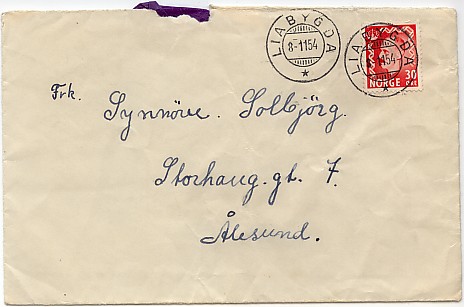 LIABYGDA
8-1154
LIABYGDA
1154
30
NORGE ØRE
Frk. Synnöve. Solbjörg.
Storhaug. gt. 7.
Ålesund.